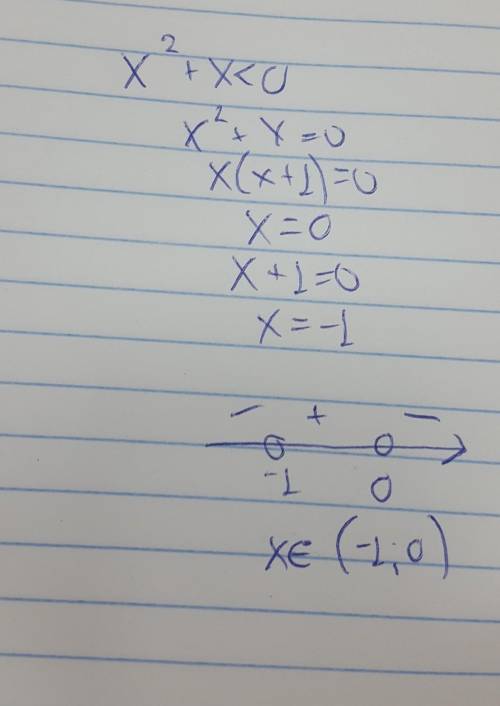 x² + x < 0
x² + x = 0
x(x+1) = 0
x = 0
x + 1 = 0
x = -1
− + −
-1 0
x∈ (-1; 0)